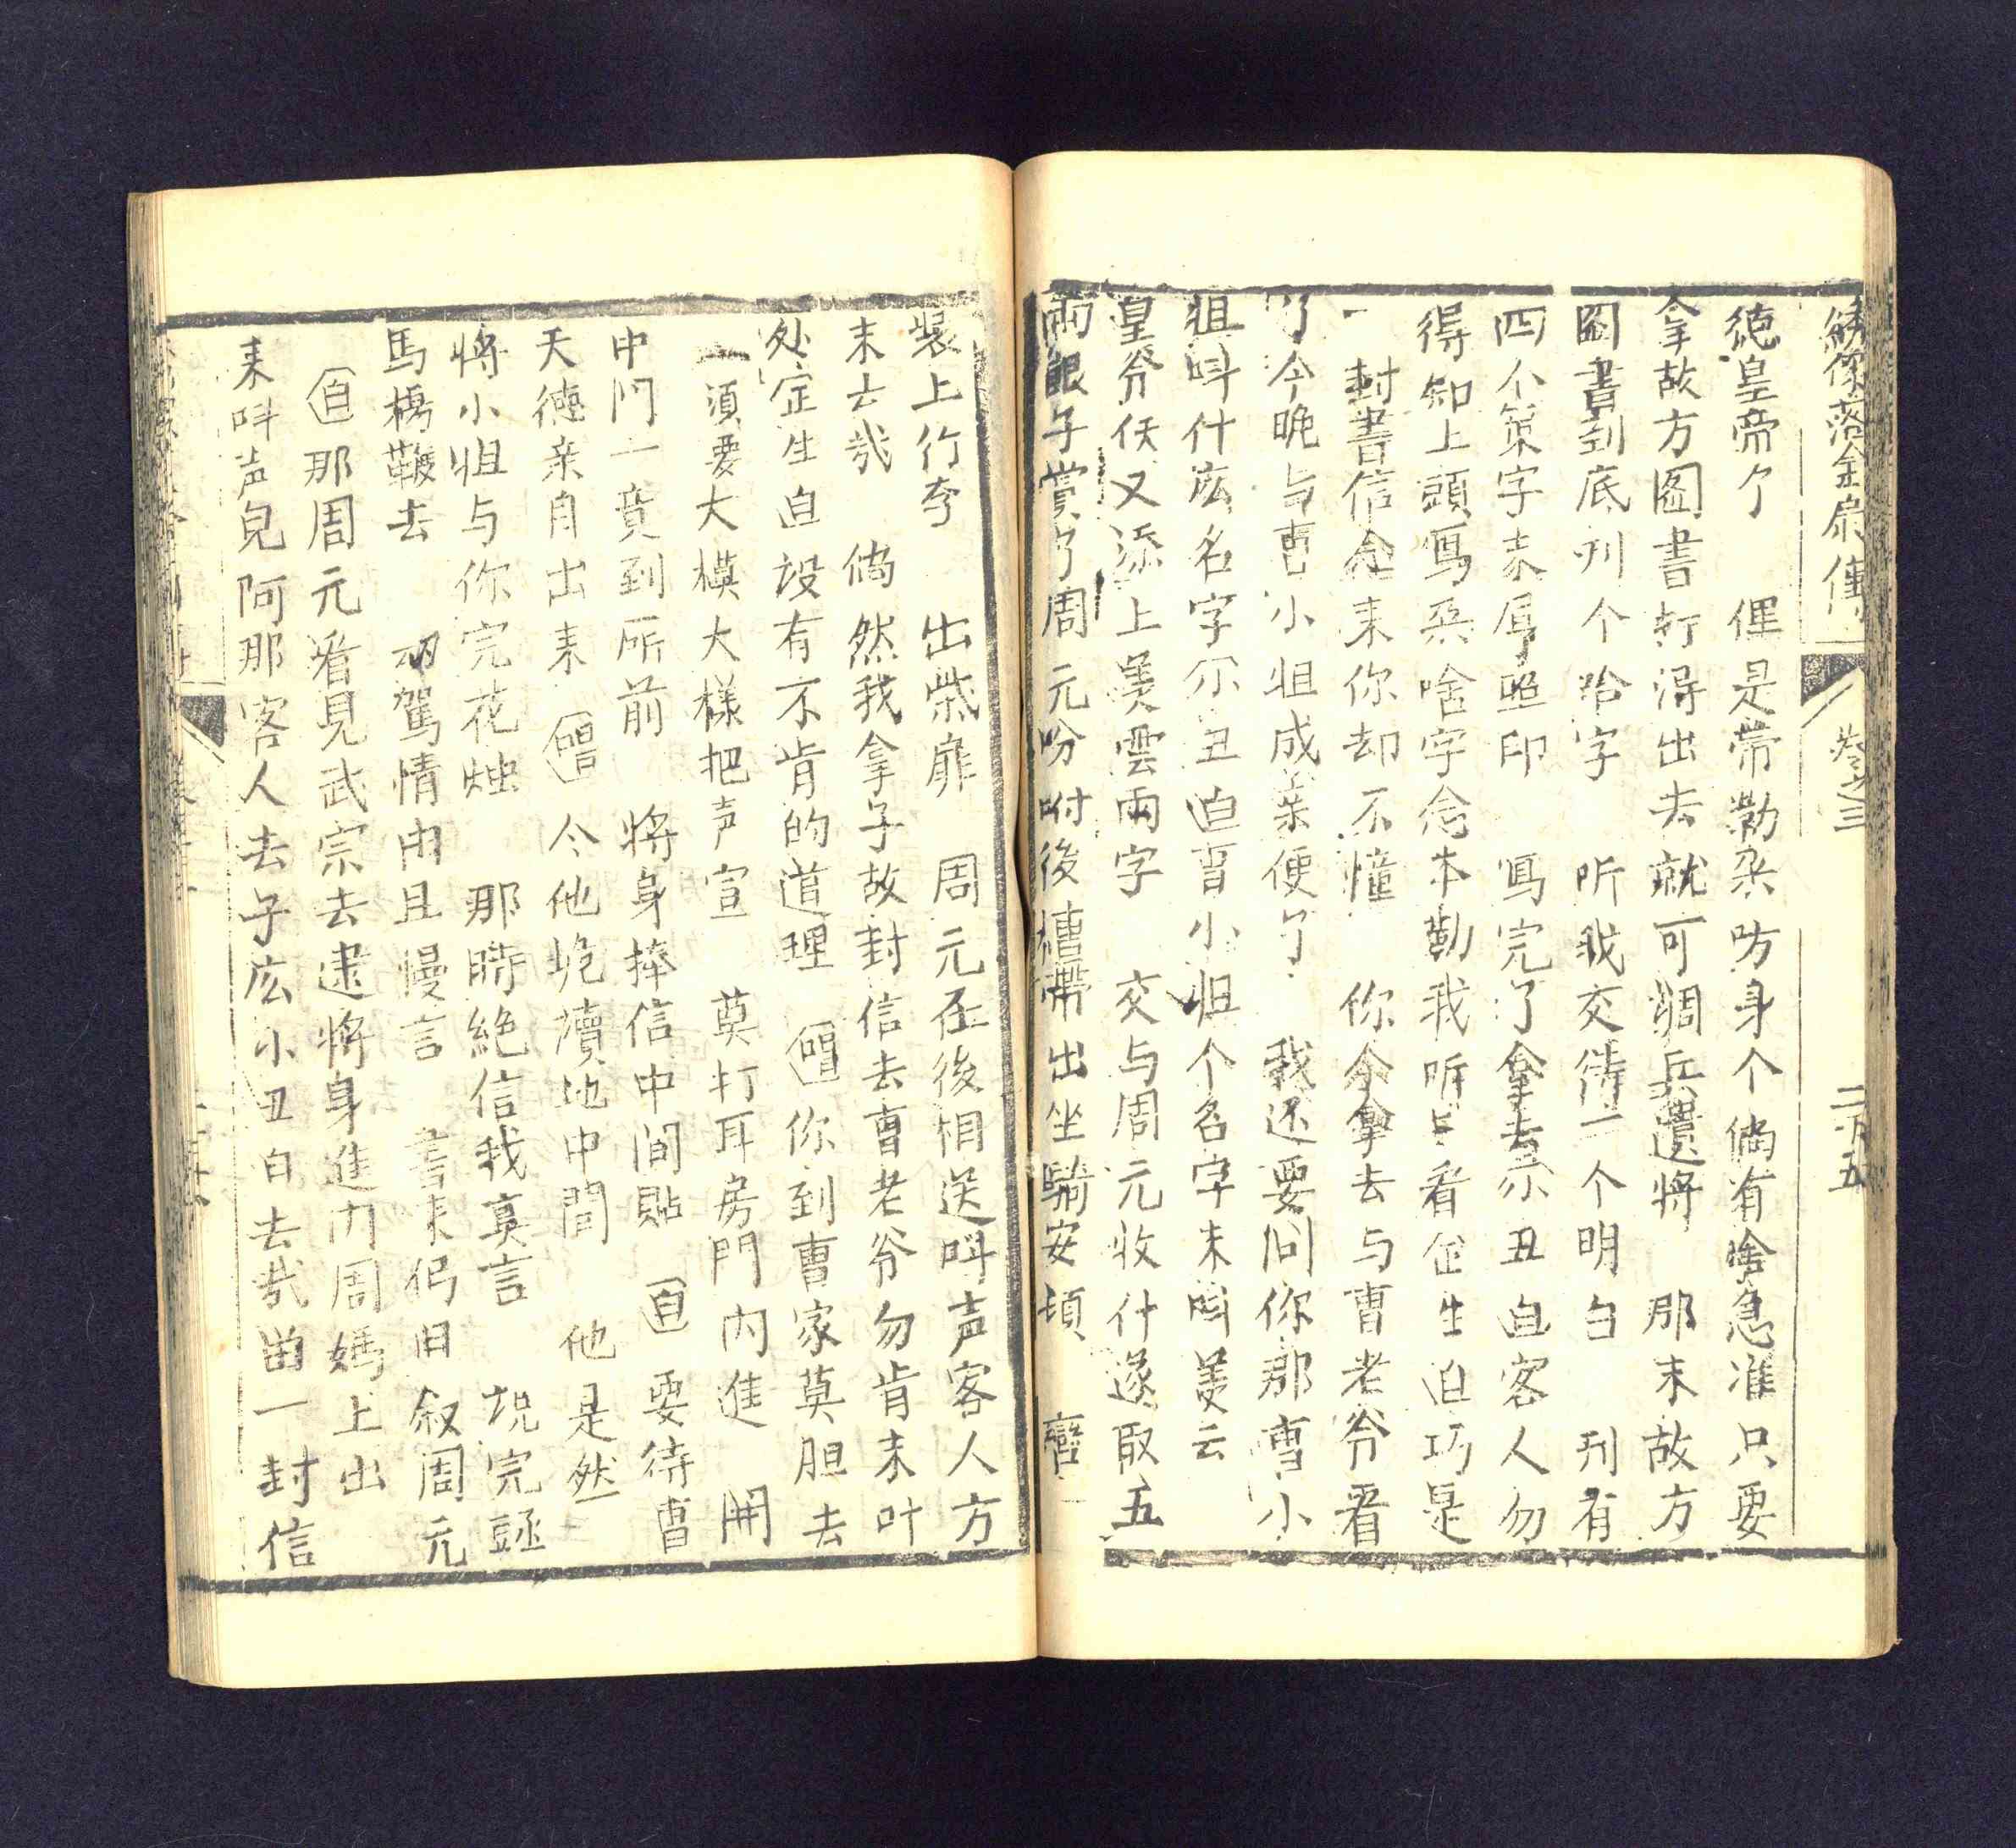 繡像落金扇傳 卷之三 二百五
徳皇帝个 俚是帶勒朶防身个倘有啥急准只要
拿故方图書打淂出去就可調兵遣將 那末故方
圖書到底刊个哈字 听我交待一个明白 刊有
四个策字末 照印 寫完了拿去示丑白客人勿
得知上頭寫朶啥字念本勤我听听看 生白巧是
一封書信念來你却不憧 你个拿去与曹老爷看
了今晚与曹小姐成亲便了 我还要问你那曹小
姐呌什庅名字尔丑白曹小姐个名字末呌美云
皇爷伏又添上美雲兩字 交与周元收什遂取五
兩銀子賞了周元吩咐後槽帶出坐騎安頓
裝上行李 出柴扉 周元在後相送呌声客人方
末去哉 倘然我拿子故封信去曹老爷勿肯末叶
处定生白設有不肯的道理 唱你到曹家莫胆去
須要大模大樣把声宣 莫打耳房門内進 開
中门一竟到所前 將身捧信中间貼 白 要待曹
天德亲自出来 唱 令他 地中間 他是然
将小姐与你完花烛 那時絶信我真言 説完
馬 鞭去 駕情由且慢言 書末 旧叙周元
白那周元看見武宗去逮將身進门周媽上出
来呌声兒阿那客人去子庅小丑白去哉畄一封信